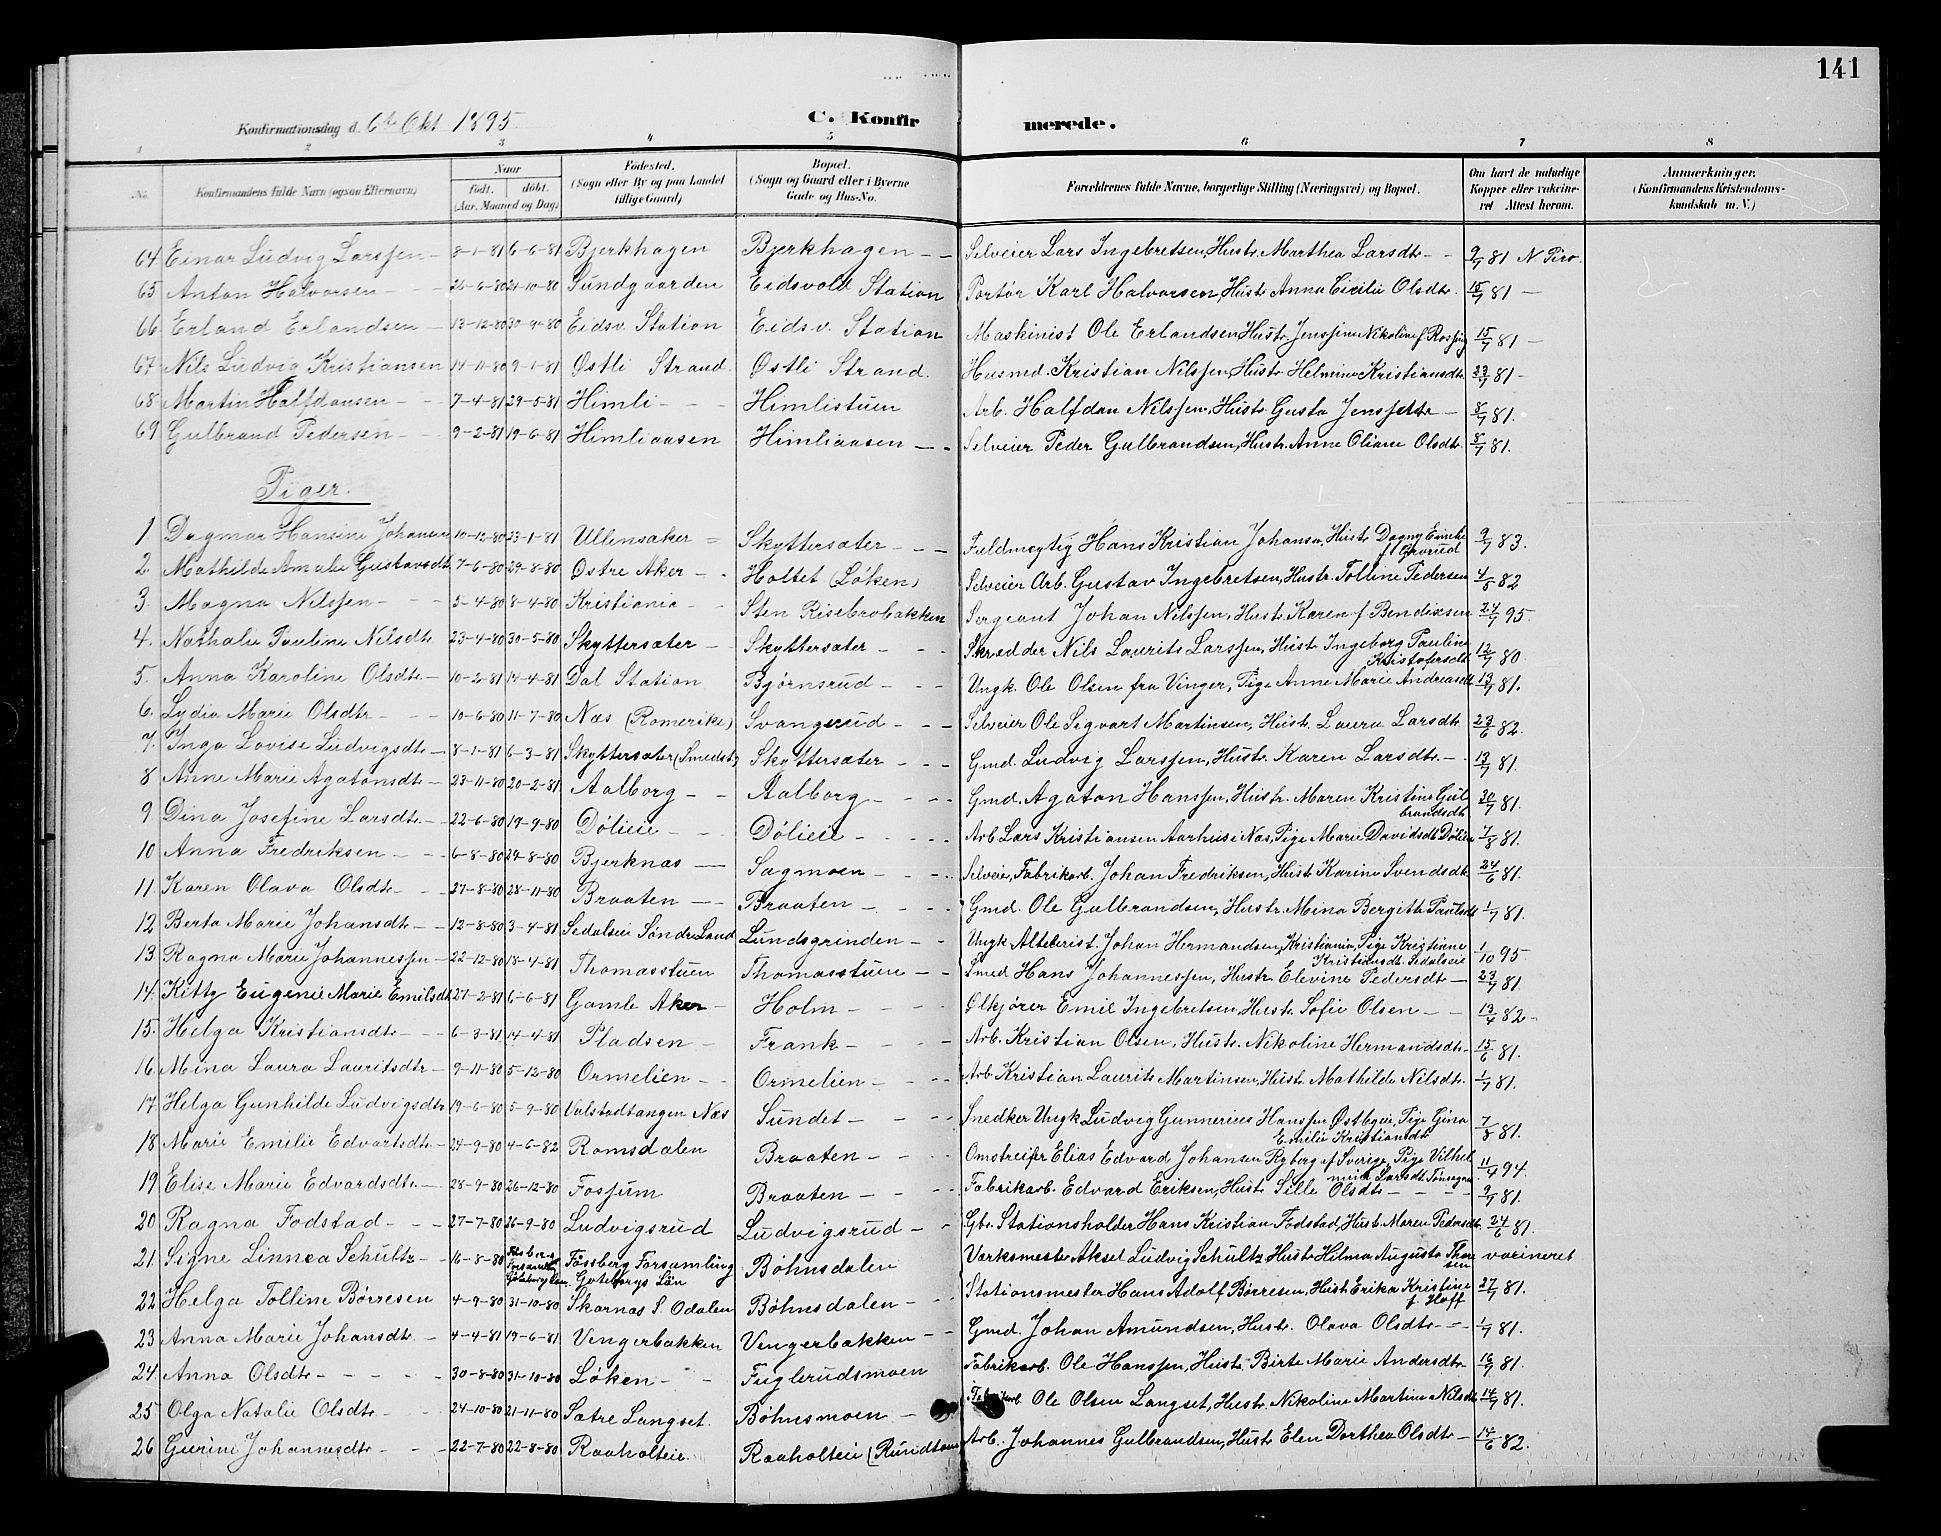 141
Konfirmationsdag d. 6te Okt 1895.
C. Konfirmerede.
1 2 3 4 5 6 7 8
No. Konfirmandens fulde Navn (ogsaa Efternavn) Naar født. døbt. (Aar, Maaned og Dag) Fødested. (Sogn eller By og paa Landet tillige Gaard) Bopæl. (Sogn og Gaard eller i Byerne Gade og Hus-No. Forældrenes fulde Navne, borgerlige Stilling (Næringsvei) og Bopæl. Om havt de naturlige Kopper eller vakcineret Attest herom. Anmærkninger. (Konfirmandens Kristendomskundskab m. V.)
64 Einar Ludvig Larssen 8-1-81 6-6-81 Bjerkhagen Bjerkhagen Selveier Lars Ingebretsen, Hustr. Marthea Larsdtr 9/7 81 N Piro
65 Anton Halvorsen 26-6-80 24-10-80 Sundgaarden Eidsvold Station Portør Karl Halvorsen, Hustr Anna Cicilie Olsdtr. 15/7 81
66 Erland Erlandsen 13-12-80 30-4-80 Eidsv. Station Eidsv. Station Maskinist Ole Erlandsen Hustr Jenssine Nikoline f. 15/7 81
67 Nils Ludvig Kristiansen 14-11-80 9-1-81 Østli Strand. Østli Strand. Husmd. Kristian Nilssen, Hustr Helmine Kristiansdtr 23/7 81
68 Martin Halfdansen 7-4-81 29-5-81 Himli Himlistuen Arb. Halfdan Nilssen, Hustr Gusta Jenssdtr 8/7 81.
69 Gulbrand Pedersen 9-2-81 19-6-81 Himliaasen Himliaasen Selveier Peder Gulbrandsen, Hustr. Anne Oliane Olsdtr. 8/7 81.
Piger.
1 Dagmar Hansine Johansen 10-12-80 23-1-81 Ullensaker Skyttersæter Fuldmegtig Hans Kristian Johansen, Hustr Dagny
f Gravrud 9/7 83.
2 Mathilde Amalie Gustavsdt. 7-6-80 29-8-80 Østre Aker Holtet (Løken) Selveier Arb. Gustav Ingebretsen, Hustr. Tolline Pedersen 4/5 82
3 Magna Nilssen 5-4-80 8-4-80 Kristiania Sten Risebrobakken Sergeant Johan Nilssen, Hustr. Karen f Bendixsen 24/7 95.
4. Nathalie Pauline Nilsdtr 23-4-80 30-5-80 Skyttersæter Skyttersæter Skrædder Nils Laurits Larssen, Hustr Ingeborg Pauline
Kristofersdt 12/7 80
5. Anna Karoline Olsdtr 10-2-81 14-4-81 Dal Station Bjørnsrud Ungk. Ole Olsen fra Vinger, Pige Anne Marie Andreasdt 13/7 81.
6. Lydia Marie Olsdtr 10-6-80 11-7-80 Næs (Romerike) Svangerud Selveier Ole Segvart Martinsen, Hustr. Laura Larsdtr 23/6 82.
7. Inga Lovise Ludvigsdtr 8-1-81 6-3-81 Skyttersæter (Smedst.) Skyttersæter Gmd. Ludvig Larssen, Hustr. Karen Larsdtr 13/7 81.
8 Anne Marie Agatonsdtr 23-11-80 20-2-81 Aalborg Aalborg Gmd. Agaton Hanssen, Hustr. Maren Kristine Gul
brandsdtr 30/7 81.
9 Dina Josefine Larsdtr. 22-6-80 19-9-80 Dølieie Dølieie Arb Lars Kristiansen Aarhus i Næs, Pige Marie Davidsdt. Dølieie 1/8 81.
10 Anna Fredriksen 6-8-80 29-8-80 Bjerknæs Sagmoen Selveier, Fabrikarb. Johan Fredriksen, Hustr Karine Svendsdt. 24/6 81.
11. Karen Olava Olsdtr 27-8-80 28-11-80 Braaten Braaten Gmd. Ole Gulbrandsen, Hustr. Mina Bergitte Paulsdt 1/7 81.
12 Berta Marie Johansdtr 12-8-80 3-4-81 Sedalseie Søndre Land Lundsgrinden Ungk Johan Hermandsen, Kristiania, Pige Kristianne
Kristiansdt. Sedalseie 1/10 95
13. Ragna Marie Johannessen 22-12-80 18-4-81 Thomasstuen Thomasstuen Smed Hans Johannessen, Hustr. Elevine Pedersdt 23/7 81
14. Kitty Eugenie Marie Emilsdt. 27-2-81 6-6-81 Gamle Aker Holm Ølkjører Emil Ingebretsen, Hustr. Sofie Olsen 13/4 82
15. Helga Kristiansdtr 6-3-81 14-4-81 Pladsen Frank Arb. Kristian Olsen, Hustr. Nikoline Hermandsdtr 15/6 81.
16 Mina Laura Lauritsdtr 9-11-80 5-12-80 Ormelien Ormelien Arb. Kristian Laurits Martinsen, Hustr Mathilde Nilsdtr. 1/7 81.
17 Helga Gunhilde Ludvigsdtr 19-6-80 5-9-80 Valstadtangen Næs Sundet Snedker Ungk Ludvig Gunnerius Hanssen Østbyeie, Pige Gina
Emilie Kristiansdtr 7/8 81.
18 Marie Emilie Edvartsdtr 24-9-80 4-6-82 Romsdalen Braaten Omstreifer Elias Edvard Johansen Ryberg af Sverige, Pige Vilhel
mine Larsdt. 11/4 94.
19 Elise Marie Edvardsdtr 28-9-80 26-12-80 Fossum Braaten Fabrikarb. Edvard Eriksen, Hustr Sille Olsdtr 9/7 81.
20 Ragna Fodstad 27-7-80 26-9-80 Ludvigsrud Ludvigsrud Gbr. Stationsholder Hans Kristian Fodstad, Hustr. Maren Pedersdt. 24/6 81.
21. Signe Linnea Schultz 16-8-80 Fossberg Forsamling Göteborgs Län Bøhnsdalen Værksmester Aksel Ludvig Schultz Hustr Hilma Augusta Thor
sen
22 Helga Tolline Børresen 4-9-80 31-10-80 Skarnæs S. Odalen Bøhnsdalen Stationsmester Hans Adolf Børresen, Hustr Erika Kristine
f. Hoff 27/7 81.
23 Anna Marie Johansdtr 4-4-81 19-6-81 Vengerbakken Vengerbakken Gmd. Johan Amundsen, Hustr. Olava Olsdtr 1/7 81.
24. Anna Olsdtr 30-8-80 31-10-80 Løken Fuglerudsmoen Fabrikarb. Ole Hanssen, Hustr Birte Marie Andersdtr 16/7 81.
25 Olga Natalie Olsdtr 24-10-80 21-11-80 Sætre Langset. Bøhnsmoen Fabrikarb Ole Olsen Langset, Hustr. Nikoline Martine Nilsdt. 14/7 81.
26 Gurine Johannesdtr 22-7-80 22-8-80 Raaholteie Raaholteie (Rundtom Arb. Johannes Gulbrandsen, Hustr Elen Dorthea Olsdtr 14/6 82.